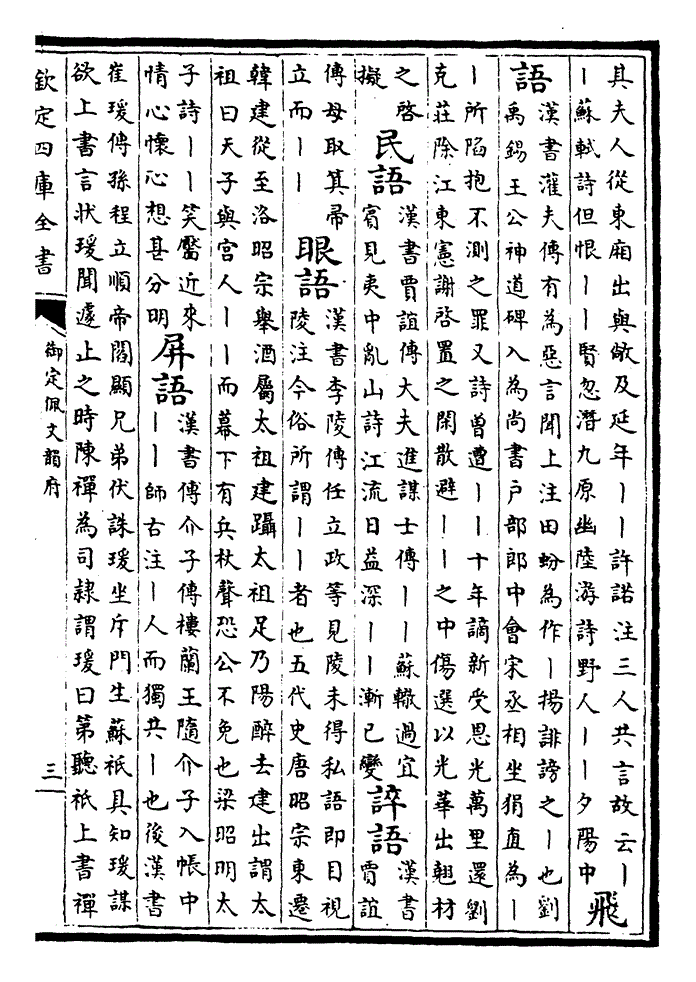 其夫人從東廂出與敞及延年丨丨許諾注三人共言故云丨
丨蘇軾詩但恨丨丨賢忽潛九原幽陸游詩野人丨丨夕陽中
飛
語
漢書灌夫傳有為惡言聞上注田蚡為作丨揚誹謗之丨也劉
禹錫王公神道碑入為尚書戶部郎中會宋丞相坐狷直為丨
丨所陷抱不測之罪又詩曾遭丨丨十年謫新受恩光萬里還劉
克莊除江東憲謝啓置之閑散避丨丨之中傷選以光華出翹材
之啓
擬
民語
漢書賈誼傳大夫進謀士傳丨丨蘇轍過宜
賓見夷中亂山詩江流日益深丨丨漸已變
誶語
漢書
賈誼
傳母取箕帚
立而丨丨
眼語
漢書李陵傳任立政等見陵未得私語即目視
陵注今俗所謂丨丨者也五代史唐昭宗東遷
韓建從至洛昭宗舉酒屬太祖建躡太祖足乃陽醉去建出謂太
祖曰天子與宮人丨丨而幕下有兵杖聲恐公不免也梁昭明太
子詩丨丨笑靨近來
情心懷心想甚分明
屏語
漢書傅介子傳樓蘭王隨介子入帳中
丨丨師古注丨人而獨共丨也後漢書
崔瑗傳孫程立順帝閻顯兄弟伏誅瑗坐斥門生蘇祇具知瑗謀
欲上書言狀瑗聞遽止之時陳禪為司隸謂瑗曰第聽祇上書禪
欽定四庫全書
御定佩文韻府
三